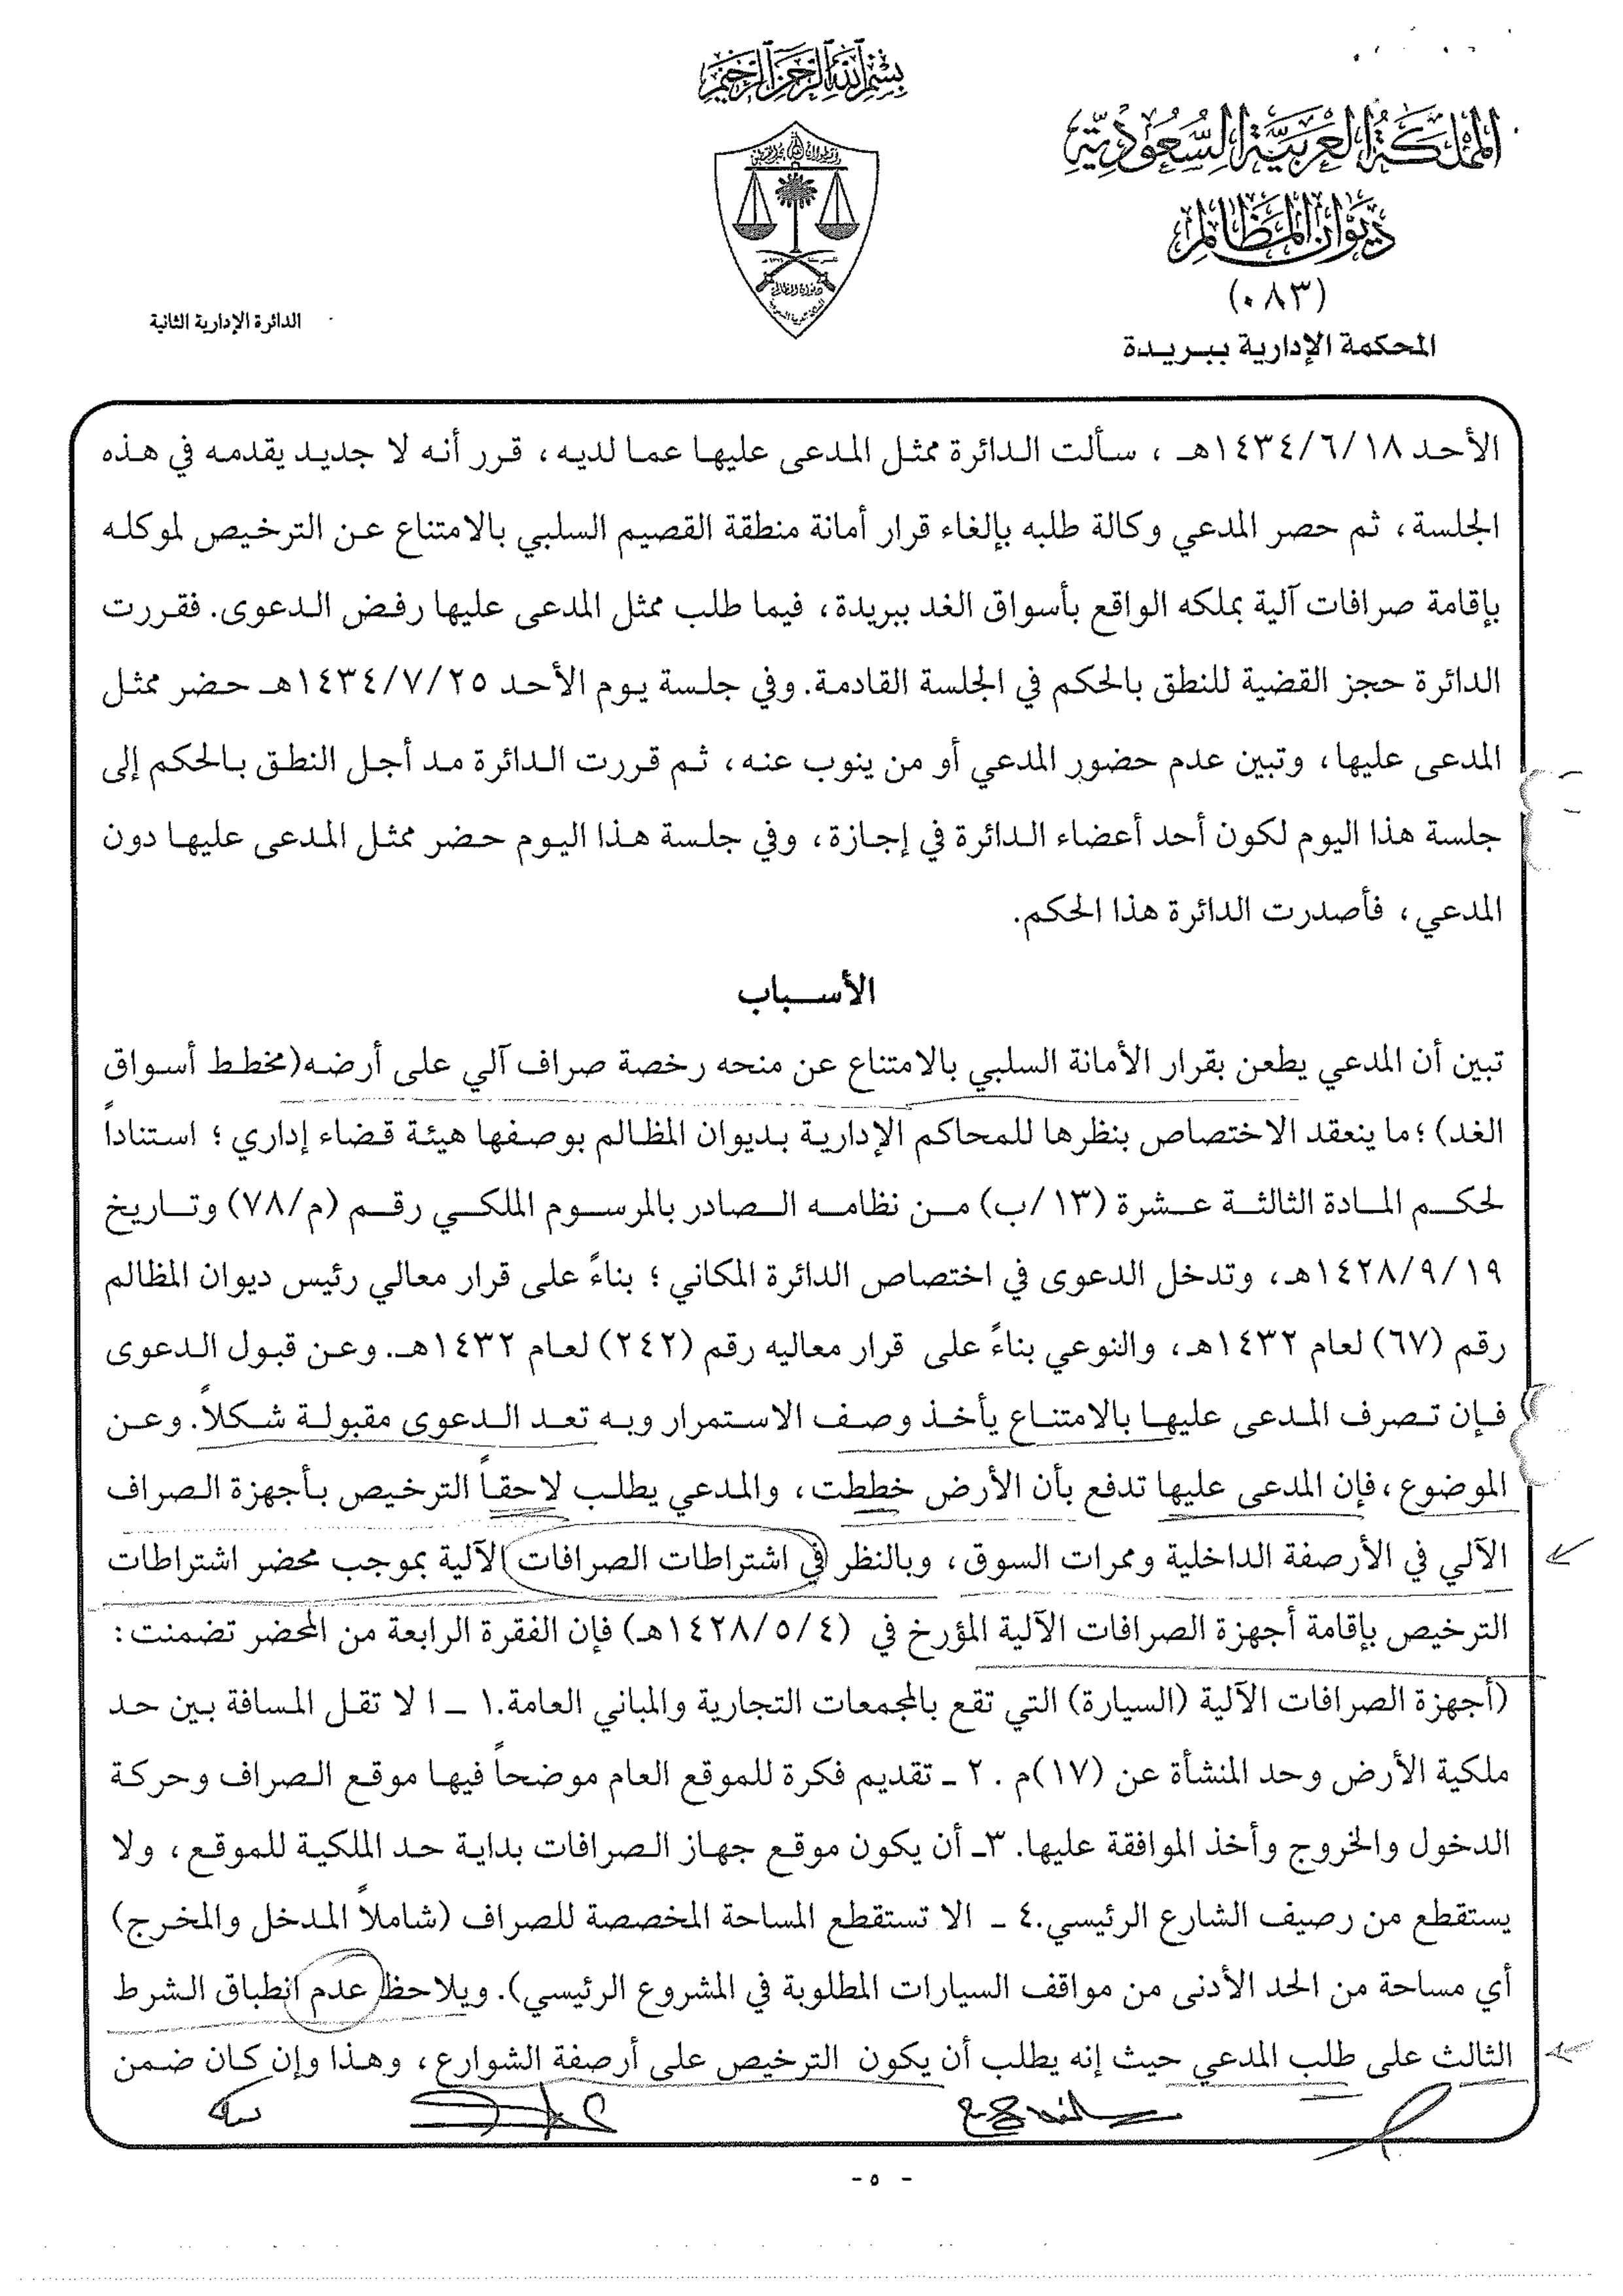 بسم الله الرحمن الرحيم
المملكة العربية السعودية
ديوان المظالم
(٠٨٣)
المحكمة الإدارية ببريدة
الدائرة الإدارية الثانية
الأحد ١٤٣٤/٦/١٨هـ ، سألت الدائرة ممثل المدعى عليها عما لديه، قرر أنه لا جديد يقدمه في هذه
الجلسة، ثم حصر المدعي وكالة طلبه بإلغاء قرار أمانة منطقة القصيم السلبي بالامتناع عن الترخيص لموكله
بإقامة صرافات آلية بملكه الواقع بأسواق الغد ببريدة، فيما طلب ممثل المدعى عليها رفض الدعوى. فقررت
الدائرة حجز القضية للنطق بالحكم في الجلسة القادمة. وفي جلسة يوم الأحد ١٤٣٤/٧/٢٥هـ حضر ممثل
المدعى عليها، وتبين عدم حضور المدعي أو من ينوب عنه، ثم قررت الدائرة مد أجل النطق بالحكم إلى
جلسة هذا اليوم لكون أحد أعضاء الدائرة في إجازة، وفي جلسة هذا اليوم حضر ممثل المدعى عليها دون
المدعي، فأصدرت الدائرة هذا الحكم.
الأسباب
تبين أن المدعي يطعن بقرار الأمانة السلبي بالامتناع عن منحه رخصة صراف آلي على أرضه(مخطط أسواق
الغد) ؛ ما ينعقد الاختصاص بنظرها للمحاكم الإدارية بديوان المظالم بوصفها هيئة قضاء إداري ؛ استناداً
لحكم المادة الثالثة عشرة (١٣/ب) من نظامه الصادر بالمرسوم الملكي رقم (م/٧٨) وتاريخ
١٤٢٨/٩/١٩هـ، وتدخل الدعوى في اختصاص الدائرة المكاني ؛ بناءً على قرار معالي رئيس ديوان المظالم
رقم (٦٧) لعام ١٤٣٢هـ، والنوعي بناءً على قرار معاليه رقم (٢٤٢) لعام ١٤٣٢هـ. وعن قبول الدعوى
فإن تصرف المدعى عليها بالامتناع يأخذ وصف الاستمرار وبه تعد الدعوى مقبولة شكلاً. وعن
الموضوع، فإن المدعى عليها تدفع بأن الأرض خططت، والمدعي يطلب لاحقاً الترخيص بأجهزة الصراف
الآلي في الأرصفة الداخلية وممرات السوق، وبالنظر في اشتراطات الصرافات الآلية بموجب محضر اشتراطات
الترخيص بإقامة أجهزة الصرافات الآلية المؤرخ في (١٤٢٨/٥/٤هـ) فإن الفقرة الرابعة من المحضر تضمنت:
(أجهزة الصرافات الآلية (السيارة) التي تقع بالمجمعات التجارية والمباني العامة.١ ـ ا لا تقل المسافة بين حد
ملكية الأرض وحد المنشأة عن (١٧)م . ٢ ـ تقديم فكرة للموقع العام موضحاً فيها موقع الصراف وحركة
الدخول والخروج وأخذ الموافقة عليها. ٣ـ أن يكون موقع جهاز الصرافات بداية حد الملكية للموقع، ولا
يستقطع من رصيف الشارع الرئيسي.٤ ـ الا تستقطع المساحة المخصصة للصراف (شاملاً المدخل والمخرج)
أي مساحة من الحد الأدنى من مواقف السيارات المطلوبة في المشروع الرئيسي). ويلاحظ عدم انطباق الشرط
الثالث على طلب المدعي حيث إنه يطلب أن يكون الترخيص على أرصفة الشوارع، وهذا وإن كان ضمن
- ٥ -